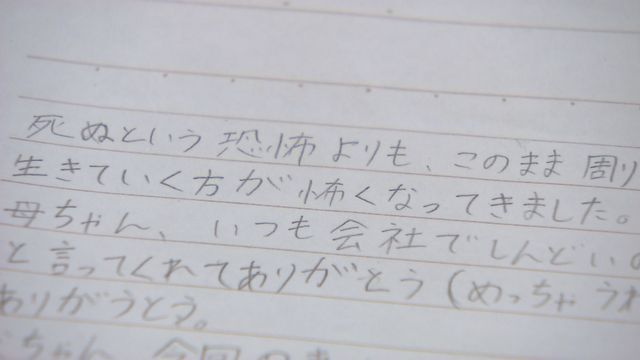 死ぬという恐怖よりも、このまま周り
生きていく方が怖くなってきました。
母ちゃん、いつも会社でしんどいの
と言ってくれてありがとう(めっちゃうれ
ありがうとう。
ちゃん 今回の